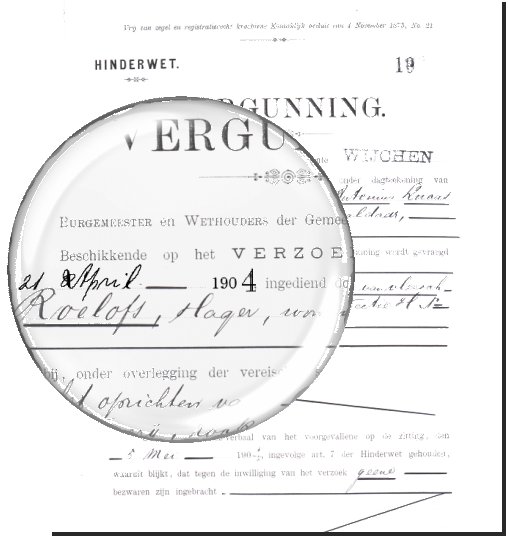 Vrij van zegel en registratierecht krachtens Koninklijk besluit van 4 November 1875, No. 21
HINDERWET.
19
RGUNNING.
VERGU
WIJCHEN
onder dagteekening van
Antonius
BURGEMEESTER en WETHOUDERS der Gemee
Beschikkende op het VERZOE
nning wordt gevraagd
21 April 1904 ingediend do
Roelofs, slager, won
bij, onder overlegging der vereis
t oprichten va
verbaal van het voorgevallene op de zitting, den
5 Mei 1904, ingevolge art. 7 der Hinderwet gehouden,
waaruit blijkt, dat tegen de inwilliging van het verzoek geene
bezwaren zijn ingebracht.